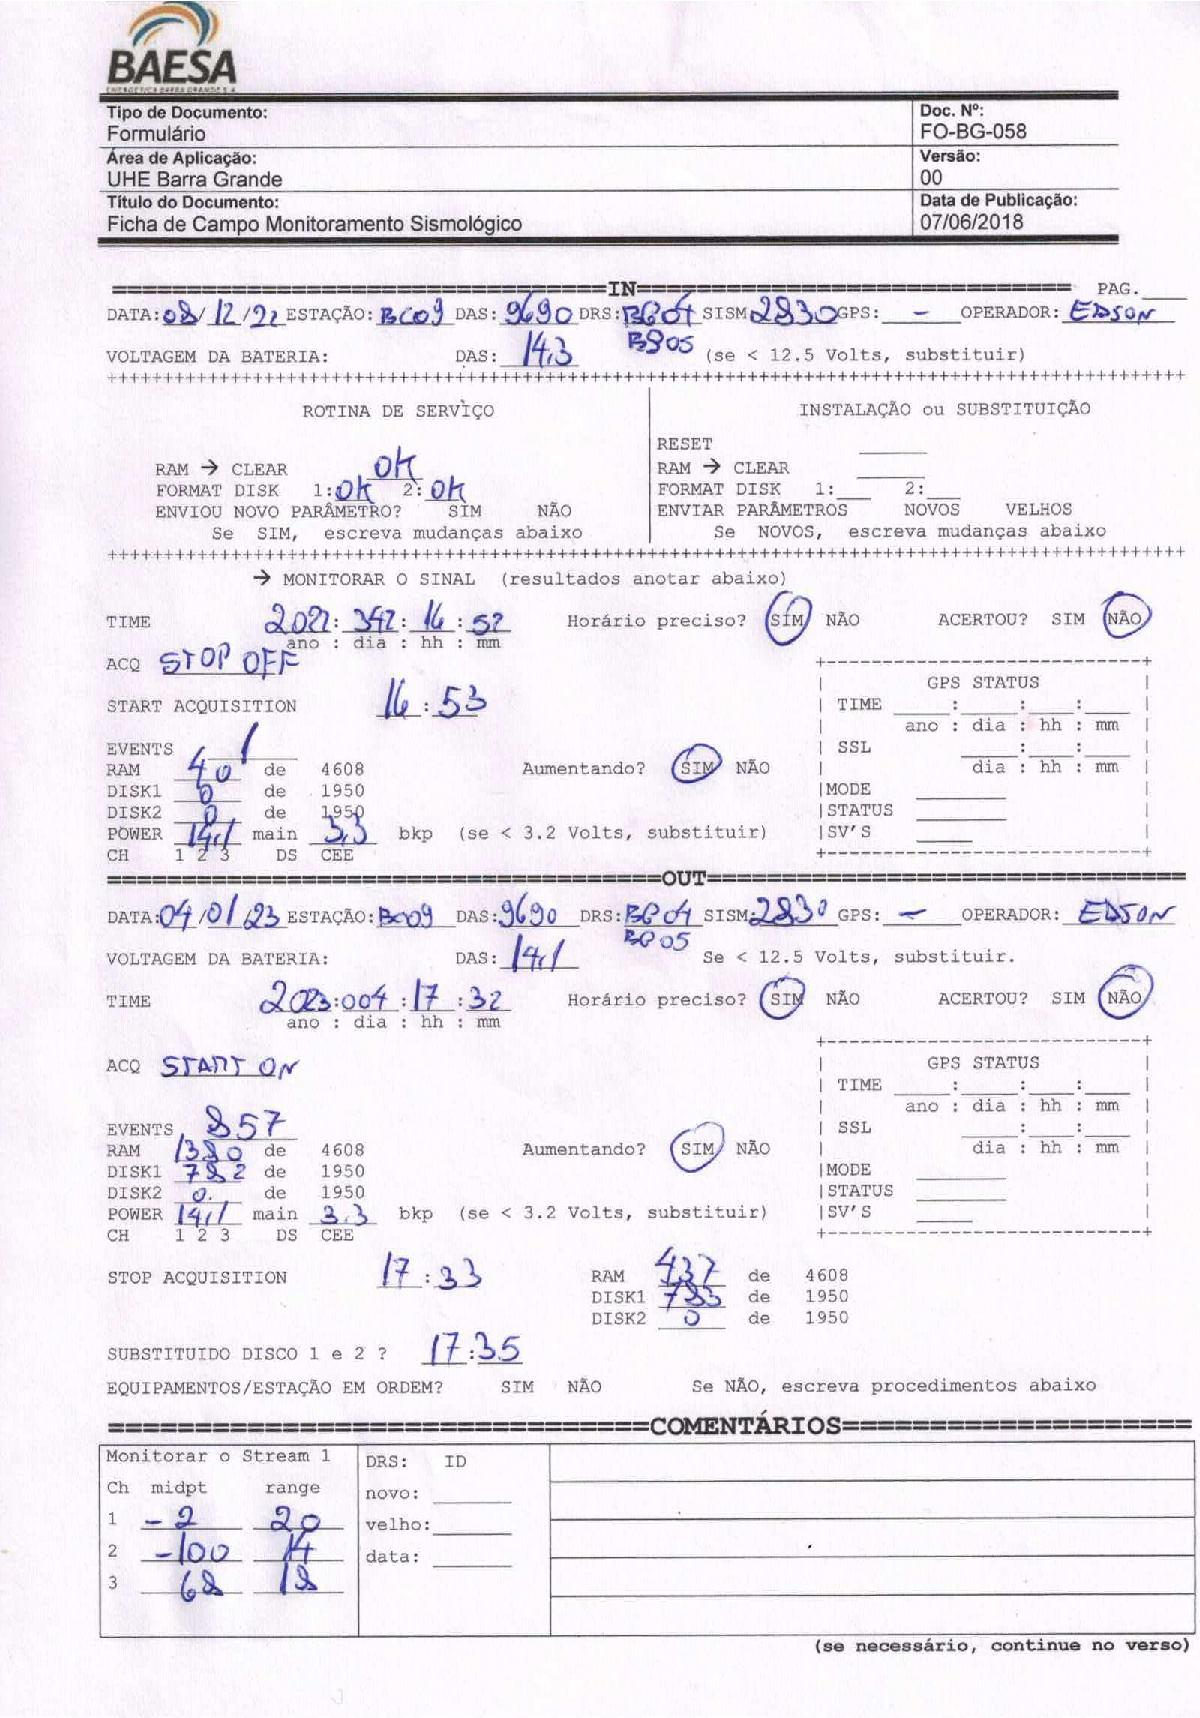 BAESA
ENERGÉTICA BARRA GRANDE S.A.
Tipo de Documento:
Formulário
Doc. Nº:
FO-BG-058
Área de Aplicação:
UHE Barra Grande
Versão:
00
Título do Documento:
Ficha de Campo Monitoramento Sismológico
Data de Publicação:
07/06/2018
IN PAG.
DATA: 08/12/22 ESTAÇÃO: BC09 DAS: 9690 DRS: BP04 SISM 2830 GPS: - OPERADOR: EDSON
VOLTAGEM DA BATERIA: DAS: 14,3 (se < 12.5 Volts, substituir)
ROTINA DE SERVIÇO
RAM → CLEAR OK
FORMAT DISK 1: OK 2: OK
ENVIOU NOVO PARÂMETRO? SIM NÃO
Se SIM, escreva mudanças abaixo
INSTALAÇÃO ou SUBSTITUIÇÃO
RESET
RAM → CLEAR
FORMAT DISK 1: 2:
ENVIAR PARÂMETROS NOVOS VELHOS
Se NOVOS, escreva mudanças abaixo
→ MONITORAR O SINAL (resultados anotar abaixo)
TIME 2022: 342: 16 : 52 Horário preciso? SIM NÃO ACERTOU? SIM NÃO
ano : dia : hh : mm
ACQ STOP OFF
START ACQUISITION 16 : 53
EVENTS 1
RAM 40 de 4608 Aumentando? SIM NÃO
DISK1 0 de 1950
DISK2 0 de 1950
POWER 14,1 main 3,3 bkp (se < 3.2 Volts, substituir)
CH 1 2 3 DS CEE
GPS STATUS
TIME : : :
ano : dia : hh : mm
SSL : :
dia : hh : mm
MODE
STATUS
SV'S
OUT
DATA: 04/01/23 ESTAÇÃO: BC09 DAS: 9690 DRS: BP04 SISM: 2830 GPS: - OPERADOR: EDSON
BP05
VOLTAGEM DA BATERIA: DAS: 14,1 Se < 12.5 Volts, substituir.
TIME 2023:004 :17 : 32 Horário preciso? SIM NÃO ACERTOU? SIM NÃO
ano : dia : hh : mm
ACQ START ON
EVENTS 857
RAM 1380 de 4608 Aumentando? SIM NÃO
DISK1 782 de 1950
DISK2 0. de 1950
POWER 14,1 main 3,3 bkp (se < 3.2 Volts, substituir)
CH 1 2 3 DS CEE
GPS STATUS
TIME : : :
ano : dia : hh : mm
SSL : :
dia : hh : mm
MODE
STATUS
SV'S
STOP ACQUISITION 17 : 33
RAM 437 de 4608
DISK1 783 de 1950
DISK2 0 de 1950
SUBSTITUIDO DISCO 1 e 2 ? 17:35
EQUIPAMENTOS/ESTAÇÃO EM ORDEM? SIM NÃO Se NÃO, escreva procedimentos abaixo
COMENTÁRIOS
Monitorar o Stream 1
Ch midpt range
1 -2 20
2 -100 14
3 68 18
DRS: ID
novo:
velho:
data:
(se necessário, continue no verso)